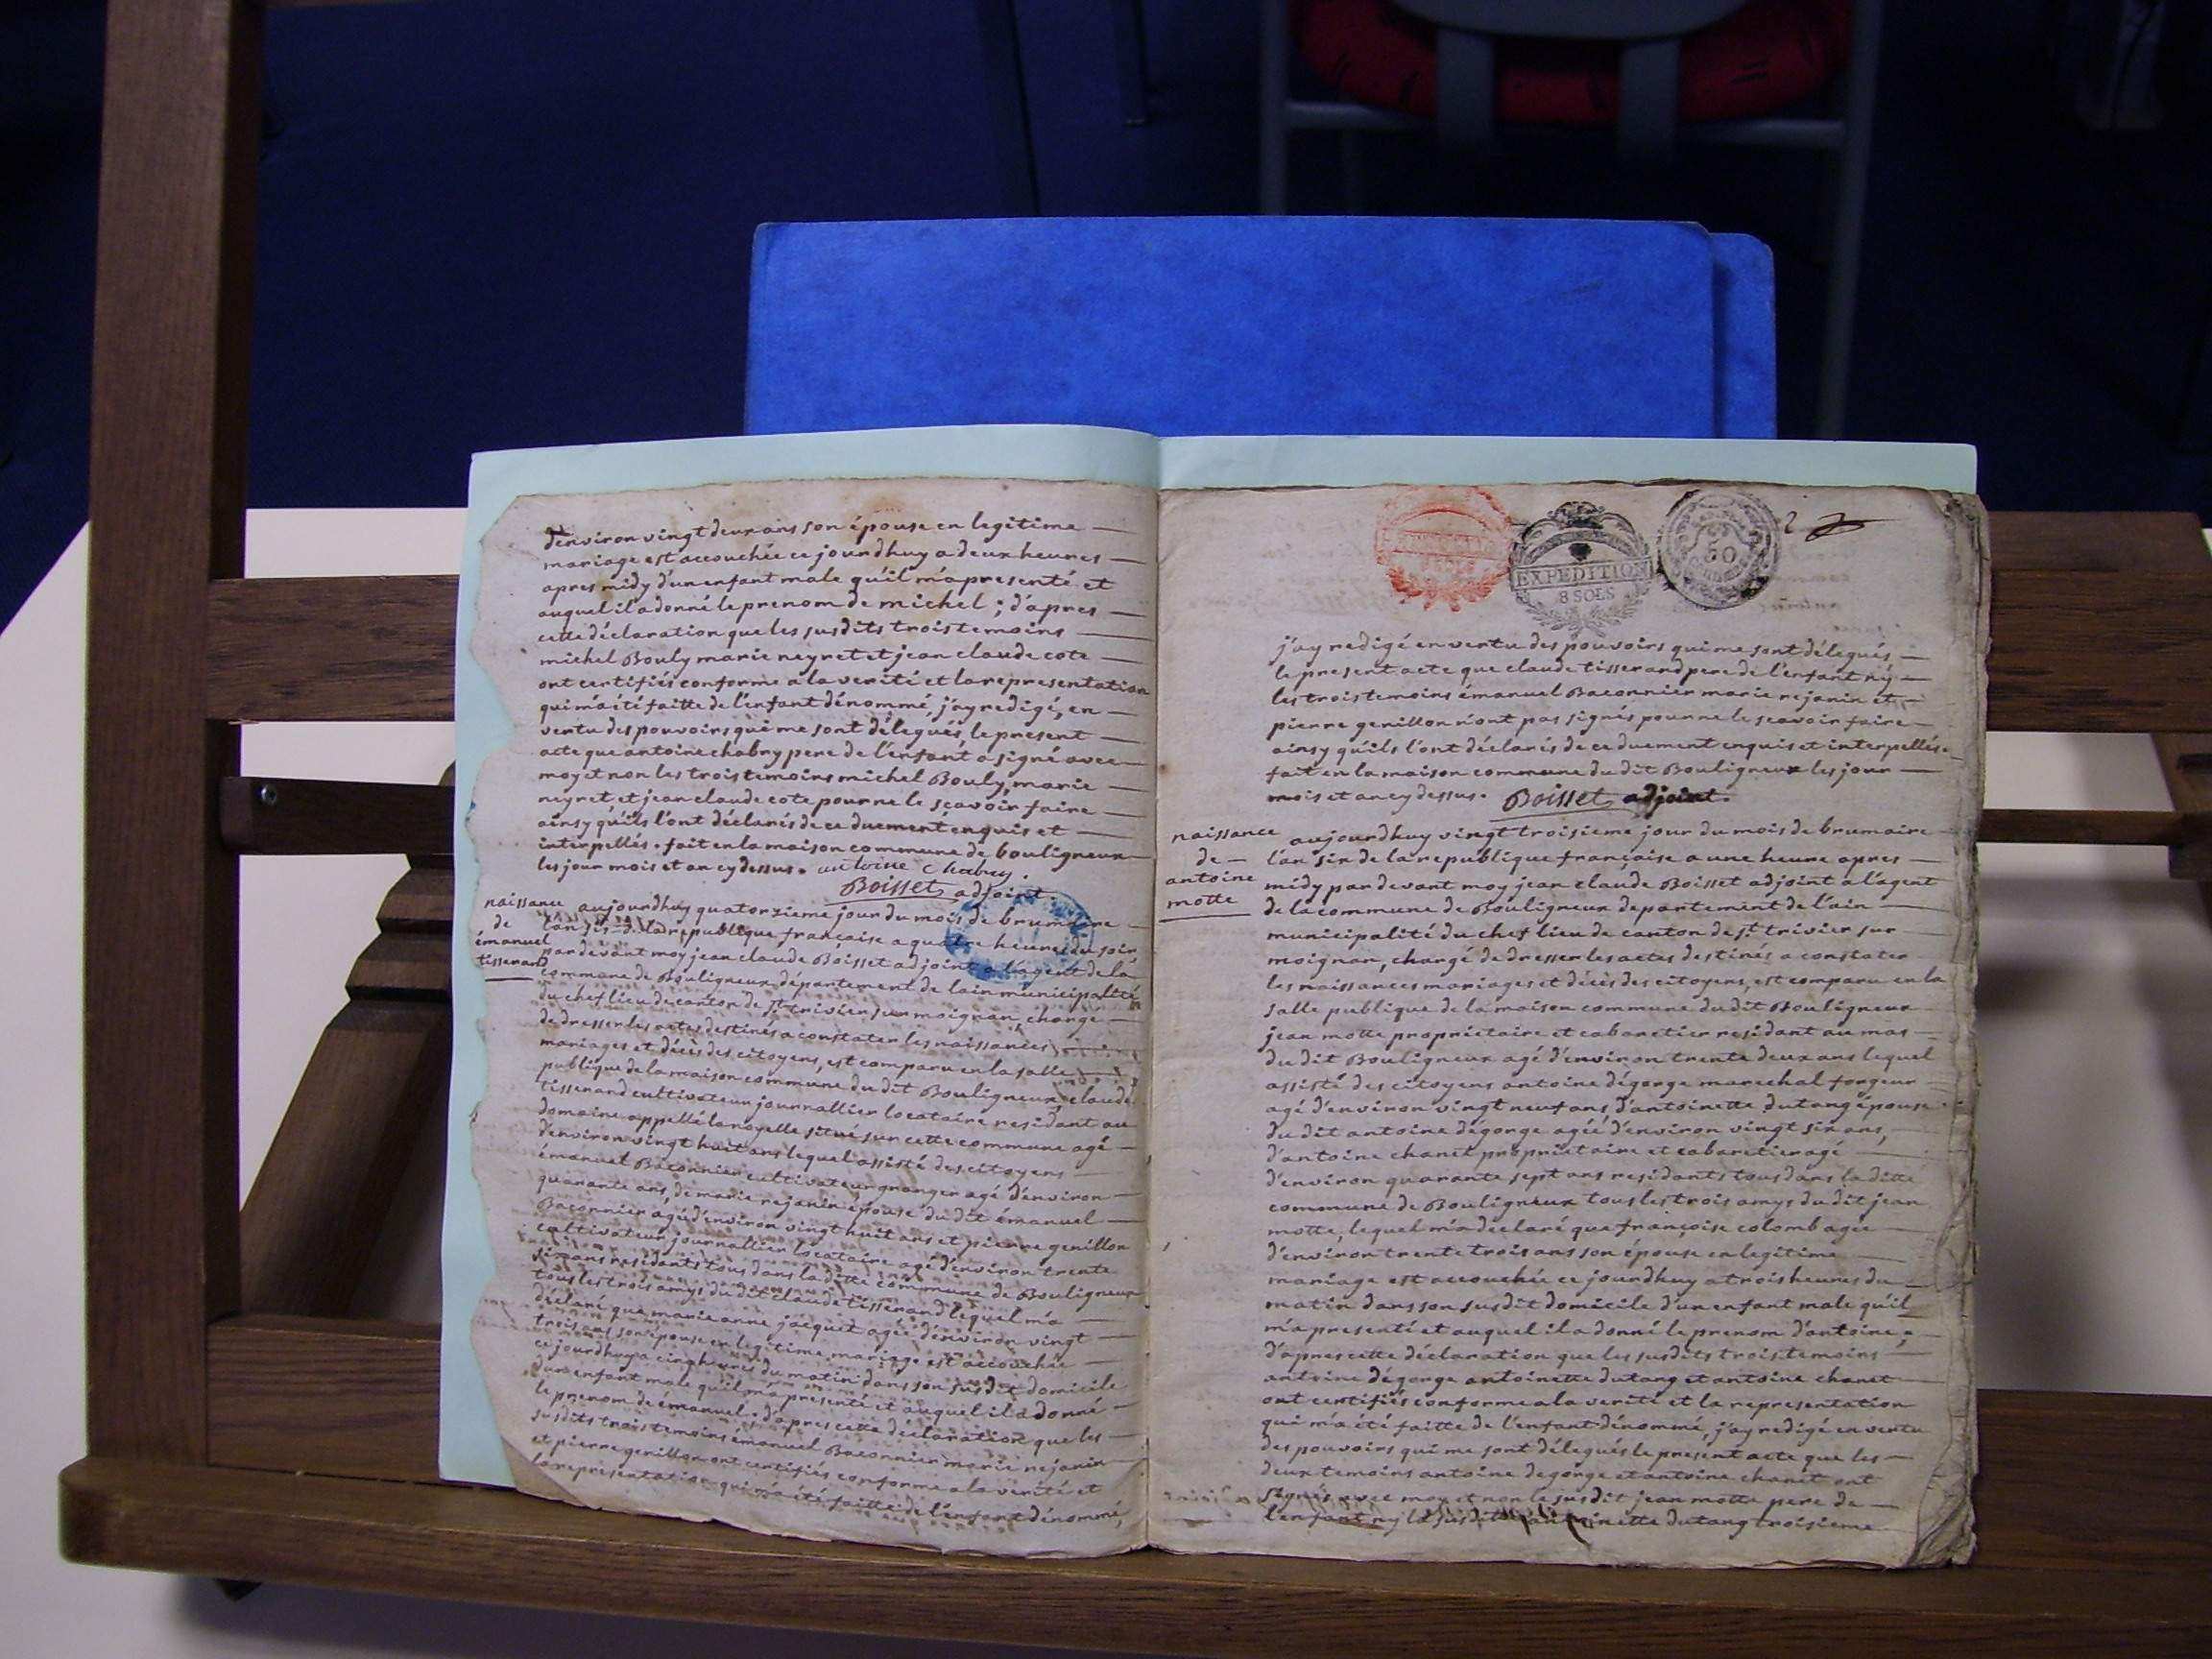 d'environ vingt deux ans son épouse en legitime
mariage est accouchée ce jourdhuy a deux heures
apres midy d'un enfant male qu'il m'a presenté et
auquel il a donné le prenom de michel ; d'apres
cette déclaration que les susdits trois temoins
michel Bouly marie neyret et jean claude cote
ont certifiés conforme a la verité et la representation
qui m'a été faitte de l'enfant dénommé, j'ay redigé, en
vertu des pouvoirs qui me sont délegués, le present
acte que antoine chabry pere de l'enfant a signé avec
moy et non les trois temoins michel Bouly, marie
neyret, et jean claude cote pour ne le sçavoir faire
ainsy qu'ils l'ont déclarés de ce duement enquis et
interpellés. fait en la maison commune de bouligneux
les jour mois et an cy dessus. antoine Chabry.
Boisset adjoint.
naissance
de
émanuel
tisserand
aujourdhuy quatorzieme jour du mois de brumaire
l'an six de la republique française a quatre heures du soir
par devant moy jean claude Boisset adjoint a l'agent de la
commune de Bouligneux département de lain municipalité
du chef lieu de canton de st. trivier sur moignan, chargé
de dresser les actes destinés a constater les naissances
mariages et décès des citoyens, est comparu en la salle
publique de la maison commune du dit Bouligneux, claude
tisserand cultivateur journallier locataire residant au
domaine appellé la noyelle situé sur cette commune agé
d'environ vingt huit ans lequel assisté des citoyens
émanuel Baconnier cultivateur granger agé d'environ
quarante ans, de marie rejanin épouse du dit émanuel
Baconnier agé d'environ vingt huit ans et pierre genillon
cultivateur journallier locataire agé d'environ trente
six ans residants tous dans la ditte commune de Bouligneux
tous les trois amys du dit claude tisserand lequel m'a
déclaré que marie anne jacquet agée d'environ vingt
trois ans son épouse en legitime mariage est accouchée
ce jourdhuy a cinq heures du matin dans son susdit domicile
d'un enfant male qu'il m'a presenté et auquel il a donné
le prenom de émanuel. d'apres cette déclaration que les
susdits trois temoins émanuel Baconnier marie rejanin
et pierre genillon ont certifiés conforme a la verité et
la representation qui m'a été faitte de l'enfant dénommé,
EXPEDITION
8 SOLS
50
2
j'ay redigé en vertu des pouvoirs qui me sont délegués
le present acte que claude tisserand pere de l'enfant n'y
les trois temoins émanuel Baconnier marie rejanin et
pierre genillon n'ont pas signés pour ne le sçavoir faire
ainsy qu'ils l'ont déclarés de ce duement enquis et interpellés.
fait en la maison commune du dit Bouligneux les jour
mois et an cy dessus. Boisset adjoint.
naissance
de
antoine
motte
aujourdhuy vingt troisieme jour du mois de brumaire
l'an six de la republique française a une heure apres
midy par devant moy jean claude Boisset adjoint a l'agent
de la commune de Bouligneux departement de l'ain
municipalité du chef lieu de canton de st. trivier sur
moignan, chargé de dresser les actes destinés a constater
les naissances mariages et décès des citoyens, est comparu en la
salle publique de la maison commune du dit Bouligneux
jean motte proprietaire et cabaretier residant au mas
du dit Bouligneux agé d'environ trente deux ans lequel
assisté des citoyens antoine dégorge marechal forgeur
agé d'environ vingt neuf ans, d'antoinette dutang épouse
du dit antoine dégorge agéé d'environ vingt six ans,
d'antoine chanet proprietaire et cabaretier agé
d'environ quarante sept ans residants tous dans la ditte
commune de Bouligneux tous les trois amys du dit jean
motte, lequel m'a declaré que françoise colomb agée
d'environ trente trois ans son épouse en legitime
mariage est accouchée ce jourdhuy a trois heures du
matin dans son susdit domicile d'un enfant male qu'il
m'a presenté et auquel il a donné le prenom d'antoine ;
d'apres cette déclaration que les susdits trois temoins
antoine dégorge antoinette dutang et antoine chanet
ont certifiés conforme a la verité et la representation
qui m'a été faitte de l'enfant dénommé, j'ay redigé en vertu
des pouvoirs qui me sont délegués le present acte que les
deux temoins antoine degorge et antoine chanet ont
signés avec moy et non le susdit jean motte pere de
l'enfant ny la susditte antoinette dutang troisieme